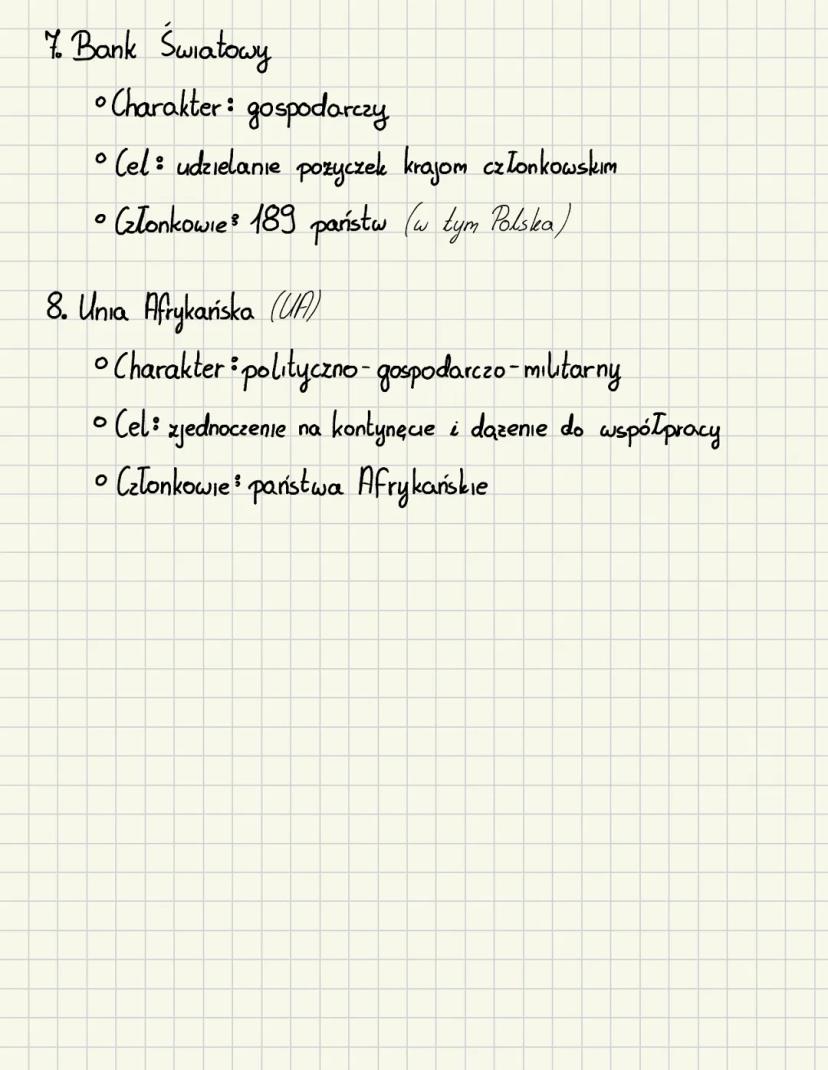 7. Bank Światowy
◦ Charakter: gospodarczy
◦ Cel: udzielanie pożyczek krajom członkowskim
◦ Członkowie: 189 państw (w tym Polska)
8. Unia Afrykańska (UA)
◦ Charakter: polityczno-gospodarczo-militarny
◦ Cel: zjednoczenie na kontynęcie i dążenie do współpracy
◦ Członkowie: państwa Afrykańskie